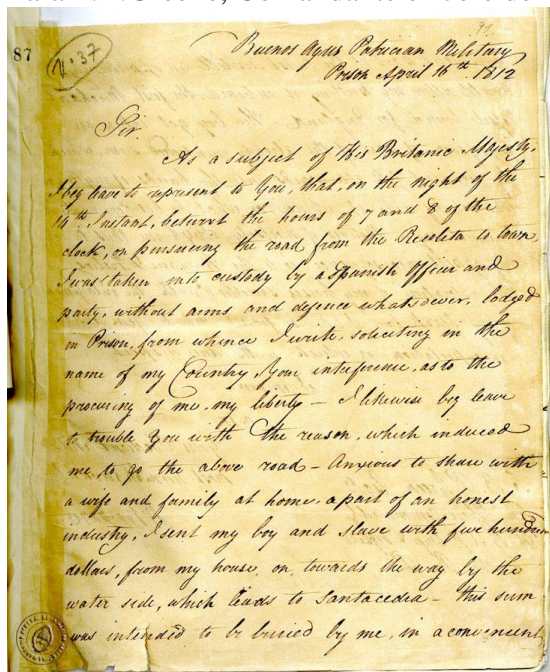 87
N. 37
91
Buenos Ayres Patrician Military
Prison April 16th 1812
Sir.
As a subject of His Britanic Majesty,
I beg leave to represent to You, that, on the night of the
14th Instant, betwixt the hours of 7 and 8 of the
clock, on pursueing the road from the Recoleta to town
I was taken into custody by a Spanish Officer and
party, without arms and defence whatsoever, lodged
in Prison, from whence I write, soliciting in the
name of my Country, Your interference, as to the
procuring of me, my liberty – I likewise beg leave
to trouble You with the reason, which induced
me, to go the above road – Anxious to share with
a wife and family at home, a part of an honest
industry, I sent my boy and slave with five hundred
dollars, from my house, on, towards the way by the
water side, which leads to Santacedia – this sum
was intended to be buried by me, in a convenient